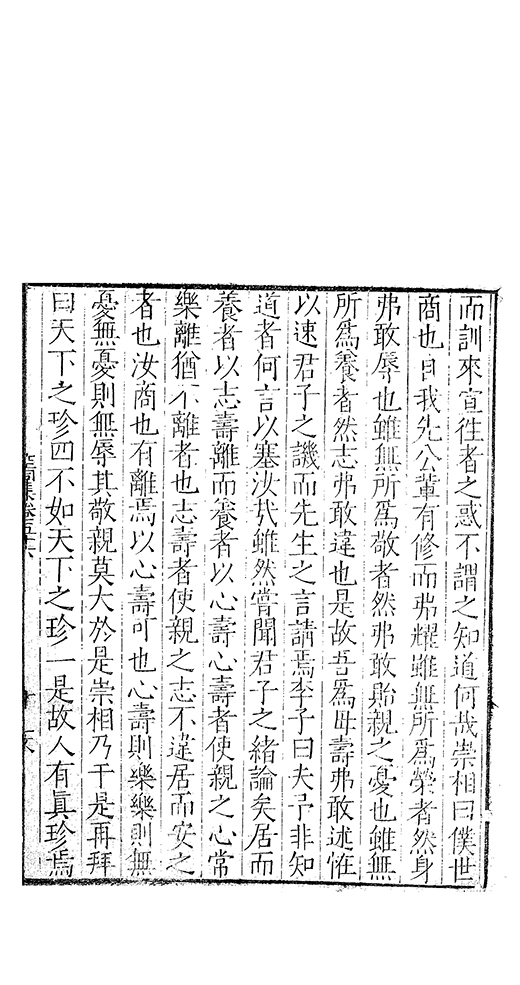 而訓來宣徃者之惑不謂之知道何哉崇相曰僕世
商也自我先公輩有修而弗耀雖無所爲榮者然身
弗敢辱也雖無所爲敬者然弗敢貽親之憂也雖無
所爲養者然志弗敢違也是故吾爲母壽弗敢述惟
以速君子之譏而先生之言請焉李子曰夫予非知
道者何言以塞汝㢤雖然嘗聞君子之緒論矣居而
養者以志壽離而養者以心壽心壽者使親之心常
樂離猶不離者也志壽者使親之志不違居而安之
者也汝商也有離焉以心壽可也心壽則樂樂則無
憂無憂則無辱其敬親莫大於是崇相乃于是再拜
曰天下之珍四不如天下之珍一是故人有眞珍焉
空同集卷五六